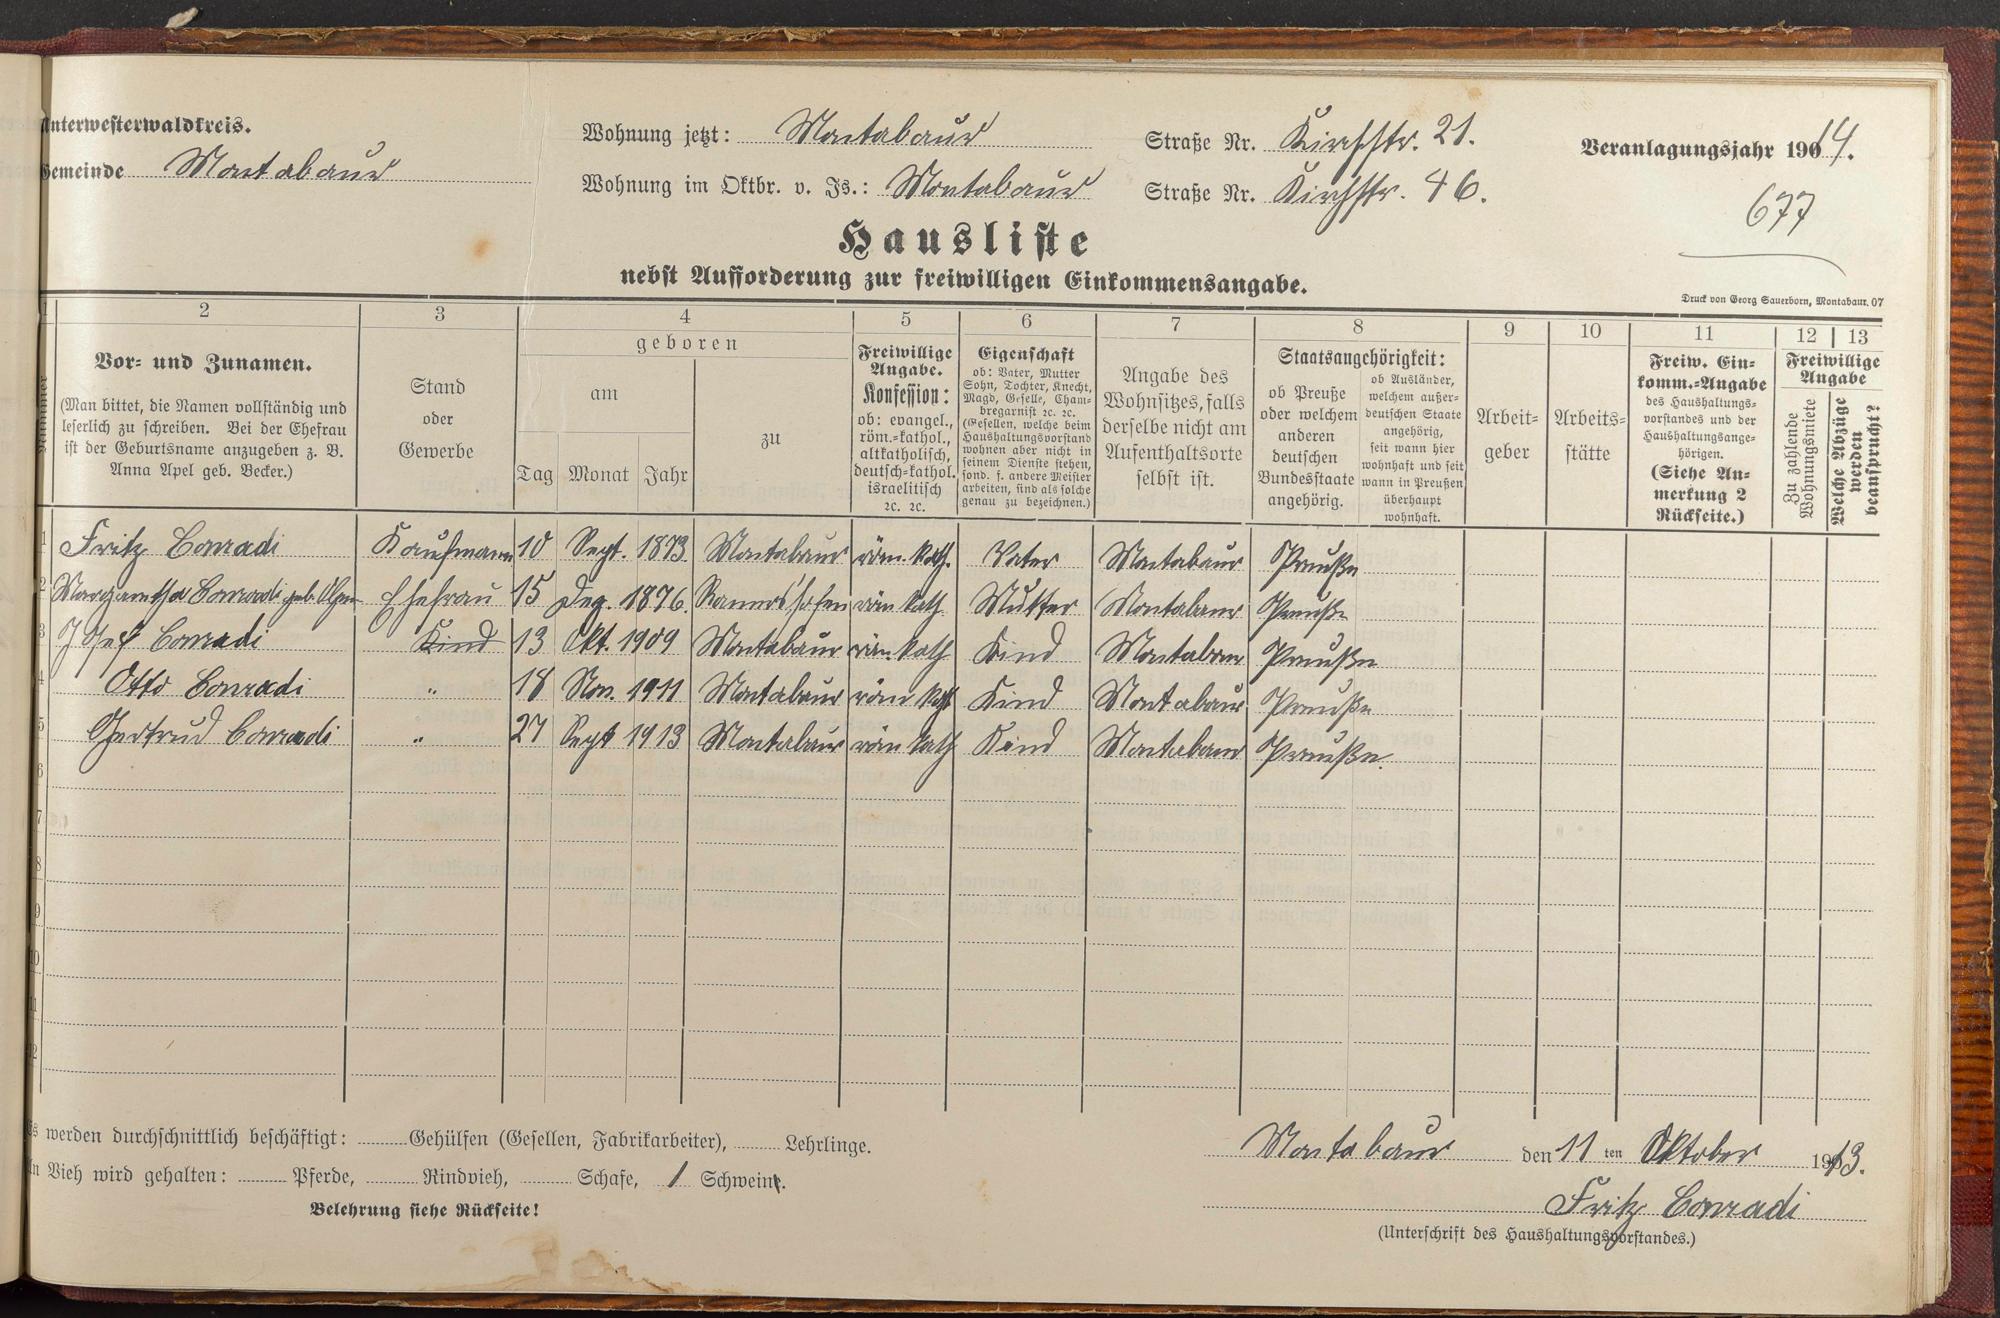 Unterwesterwaldkreis.
Gemeinde Montabaur
Wohnung jetzt: Montabaur Straße Nr. Kirchstr. 21.
Wohnung im Oktbr. v. Js.: Montabaur Straße Nr. Kirchstr. 46.
Veranlagungsjahr 1914.
677
Hausliste
nebst Aufforderung zur freiwilligen Einkommensangabe.
Druck von Georg Sauerborn, Montabaur. 07
1 2 3 4 5 6 7 8 9 10 11 12 13
Nummer
Vor- und Zunamen.
(Man bittet, die Namen vollständig und
leserlich zu schreiben. Bei der Ehefrau
ist der Geburtsname anzugeben z. B.
Anna Apel geb. Becker.)
Stand
oder
Gewerbe
geboren
am
Tag Monat Jahr
zu
Freiwillige
Angabe.
Konfession:
ob: evangel.,
röm.-kathol.,
altkatholisch,
deutsch-kathol.
israelitisch
2c. 2c.
Eigenschaft
ob: Vater, Mutter
Sohn, Tochter, Knecht,
Magd, Geselle, Cham-
bregarnist 2c. 2c.
(Gesellen, welche beim
Haushaltungsvorstand
wohnen aber nicht in
seinem Dienste stehen,
sond. f. andere Meister
arbeiten, sind als solche
genau zu bezeichnen.)
Angabe des
Wohnsitzes, falls
derselbe nicht am
Aufenthaltsorte
selbst ist.
Staatsangehörigkeit:
ob Preuße
oder welchem
anderen
deutschen
Bundesstaate
angehörig.
ob Ausländer,
welchem außer-
deutschen Staate
angehörig,
seit wann hier
wohnhaft und seit
wann in Preußen
überhaupt
wohnhaft.
Arbeit-
geber
Arbeits-
stätte
Freiw. Ein-
komm.-Angabe
des Haushaltungs-
vorstandes und der
Haushaltungsange-
hörigen.
(Siehe An-
merkung 2
Rückseite.)
Freiwillige
Angabe
Zu zahlende
Wohnungsmiete
Welche Abzüge
werden
beansprucht?
1 Fritz Conradi Kaufmann 10 Sept. 1873 Montabaur röm. kath. Vater Montabaur Preuße
2 Margaretha Conradi geb. Ehefrau 15 Dez. 1876 röm kath Mutter Montabaur Preuße
3 Josef Conradi Kind 13 Okt. 1909 Montabaur röm. kath Kind Montabaur Preuße
4 Otto Conradi " 18 Nov. 1911 Montabaur röm kath Kind Montabaur Preuße
5 Gertrud Conradi " 27 Sept 1913 Montabaur röm kath Kind Montabaur Preuße.
6
7
8
9
10
11
12
Es werden durchschnittlich beschäftigt: Gehülfen (Gesellen, Fabrikarbeiter), Lehrlinge.
An Vieh wird gehalten: Pferde, Rindvieh, Schafe, 1 Schwein.
Belehrung siehe Rückseite!
Montabaur den 11 ten Oktober 1913.
Fritz Conradi
(Unterschrift des Haushaltungsvorstandes.)